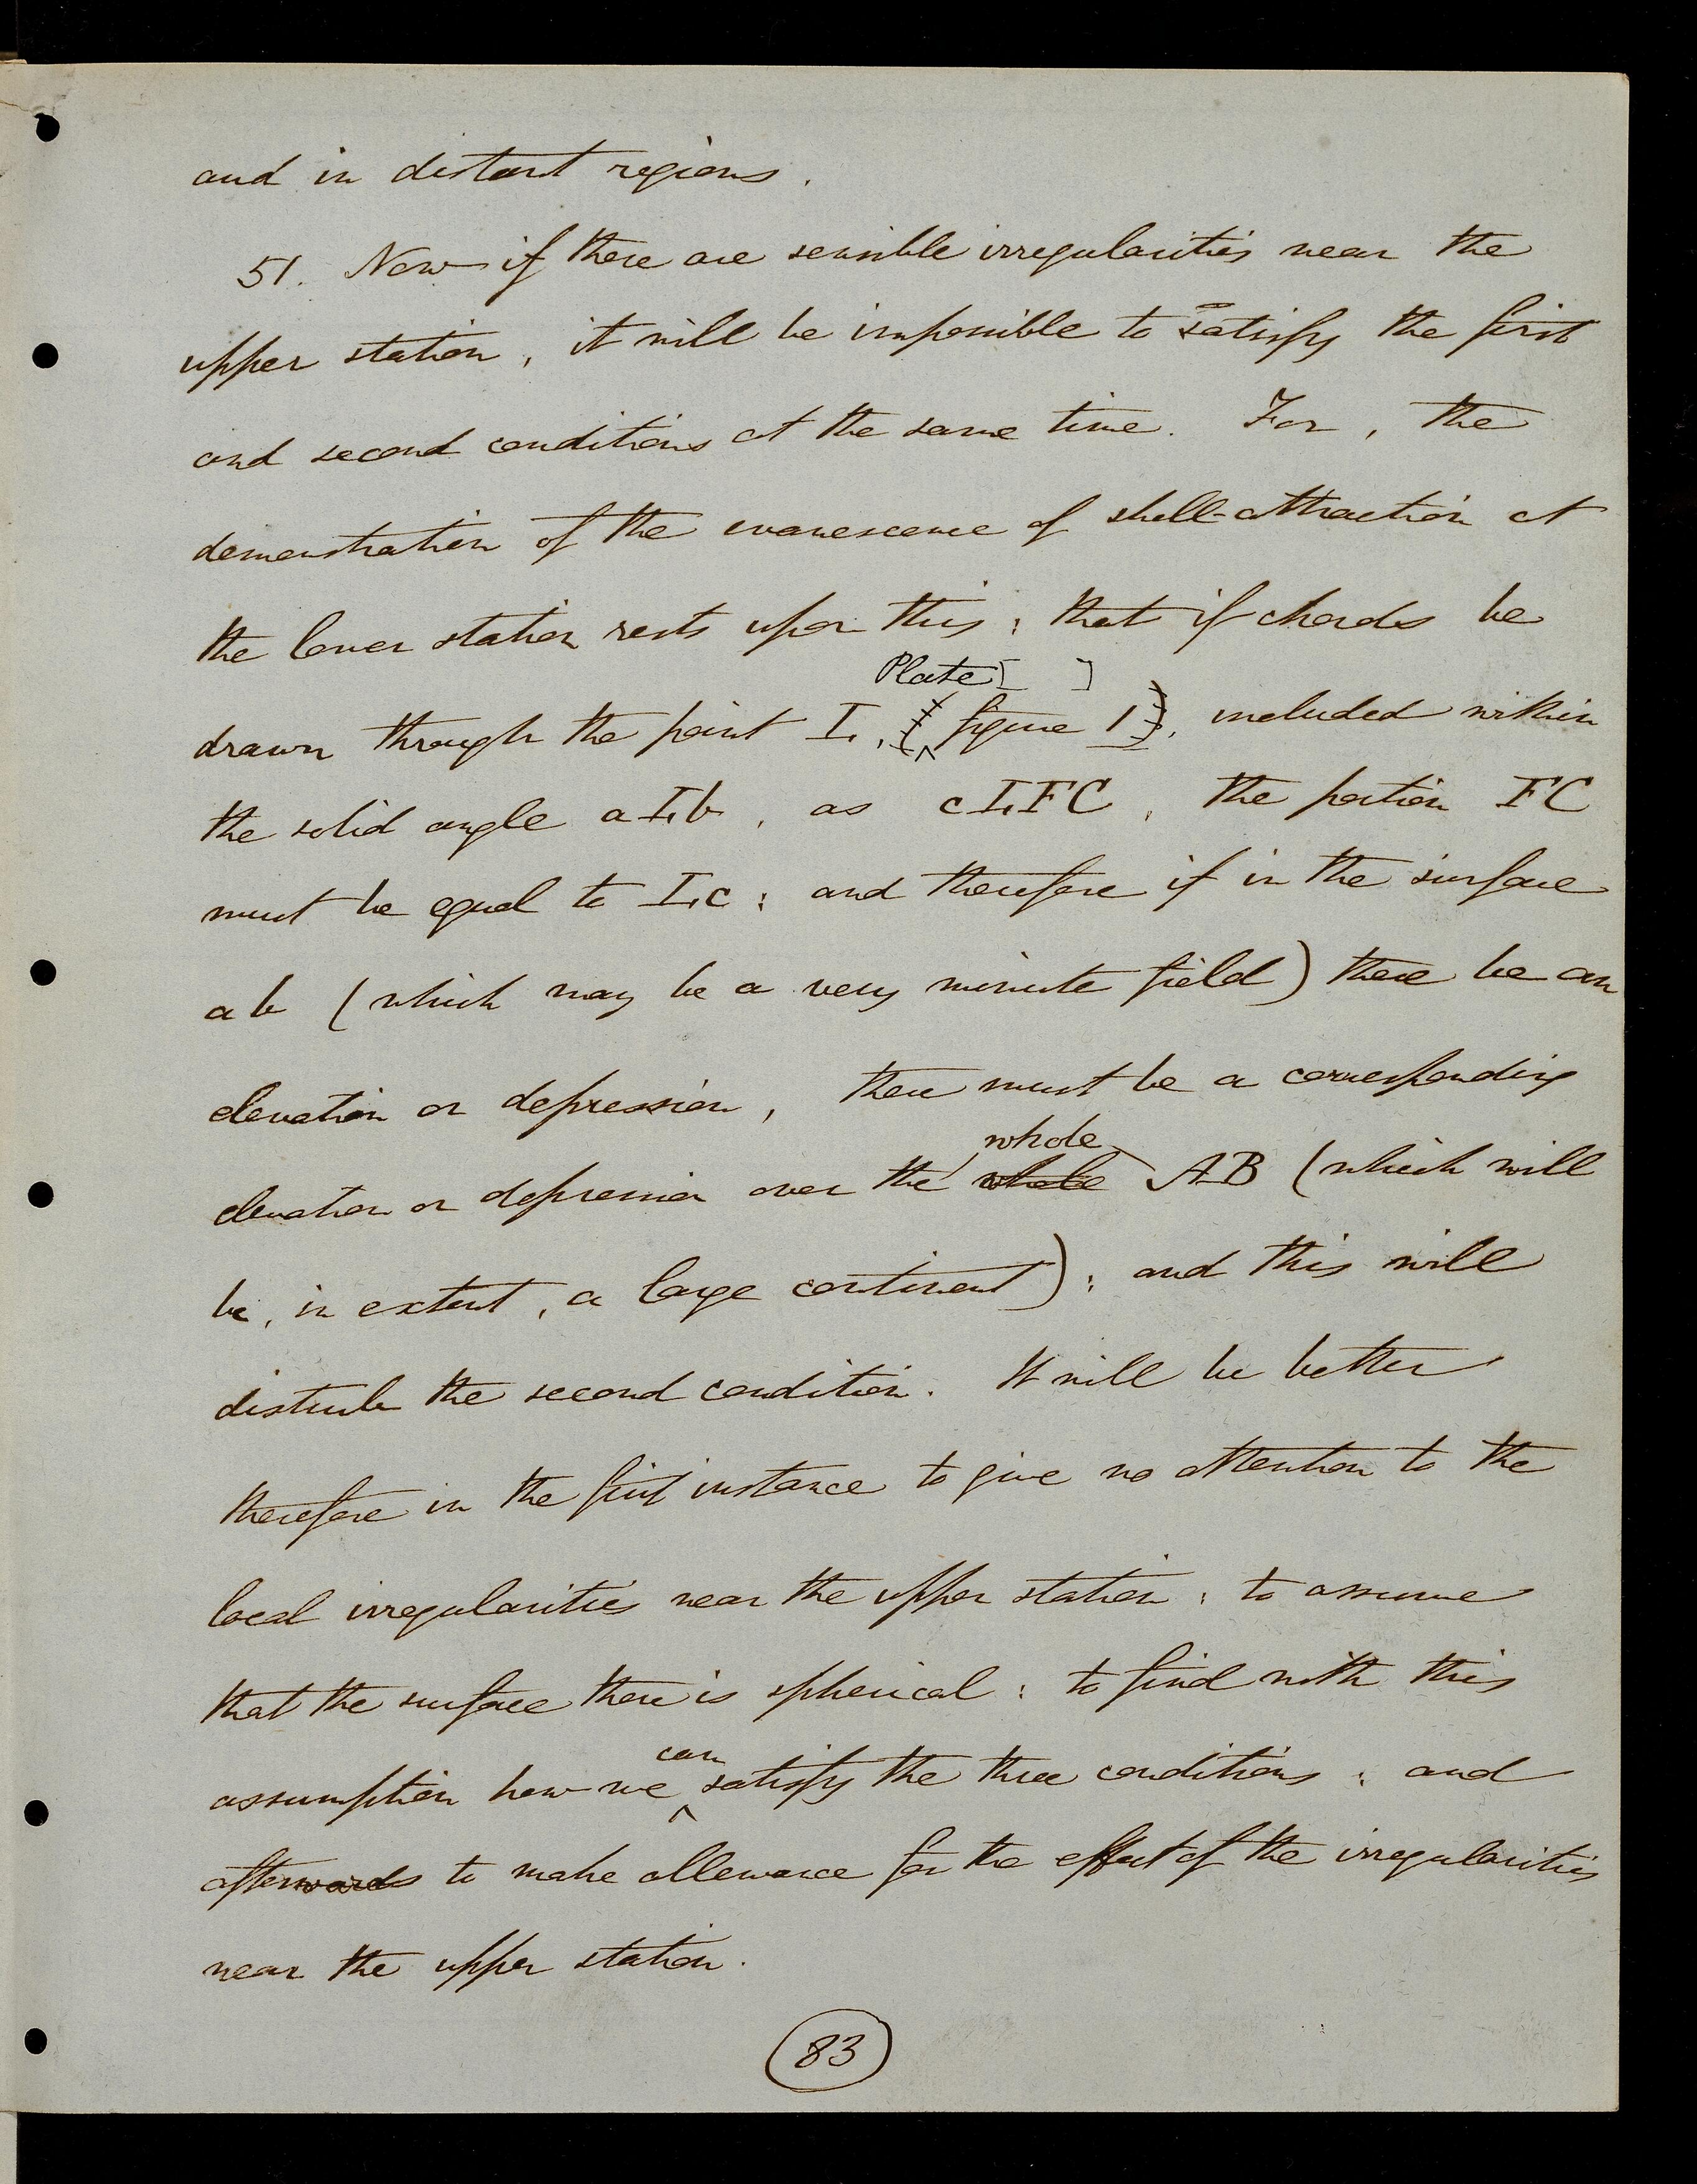 and in distant regions.
51. Now if there are sensible irregularities near the
upper station, it will be impossible to satisfy the first
and second conditions at the same time. For, the
demonstration of the evanescence of shell-attraction at
the lower station rests upon this; that if chords be
Plate [ ]
drawn through the point I, figure 1, included within
the solid angle aI,b, as cI,FC, the portion FC
must be equal to I,c: and therefore if in the surface
ab (which may be a very minute field) there be an
elevation or depression, there must be a corresponding
whole
elevation or depression over the whole AB (which will
be, in extent, a large continent); and this will
disturb the second condition. It will be better
therefore in the first instance to give no attention to the
local irregularities near the upper station: to assume
that the surface there is spherical: to find with this
can
assumption how we satisfy the three conditions: and
afterwards to make allowance for the effect of the irregularities
near the upper station.
83